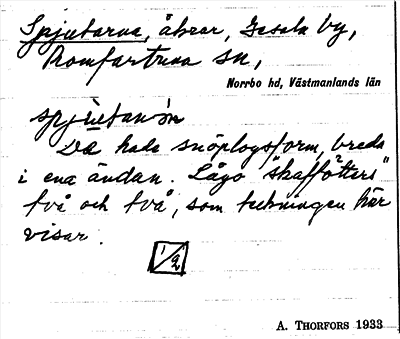 Spjutarna, åkrar, Isala by,
Romfartuna sn,
Norrbo hd, Västmanlands län
spjùtanór
Då hade snöplogsform, breda
i ena ändan. Lågo "skaffötters"
två och två, som teckningen här
visar.
1/2
A. THORFORS 1933